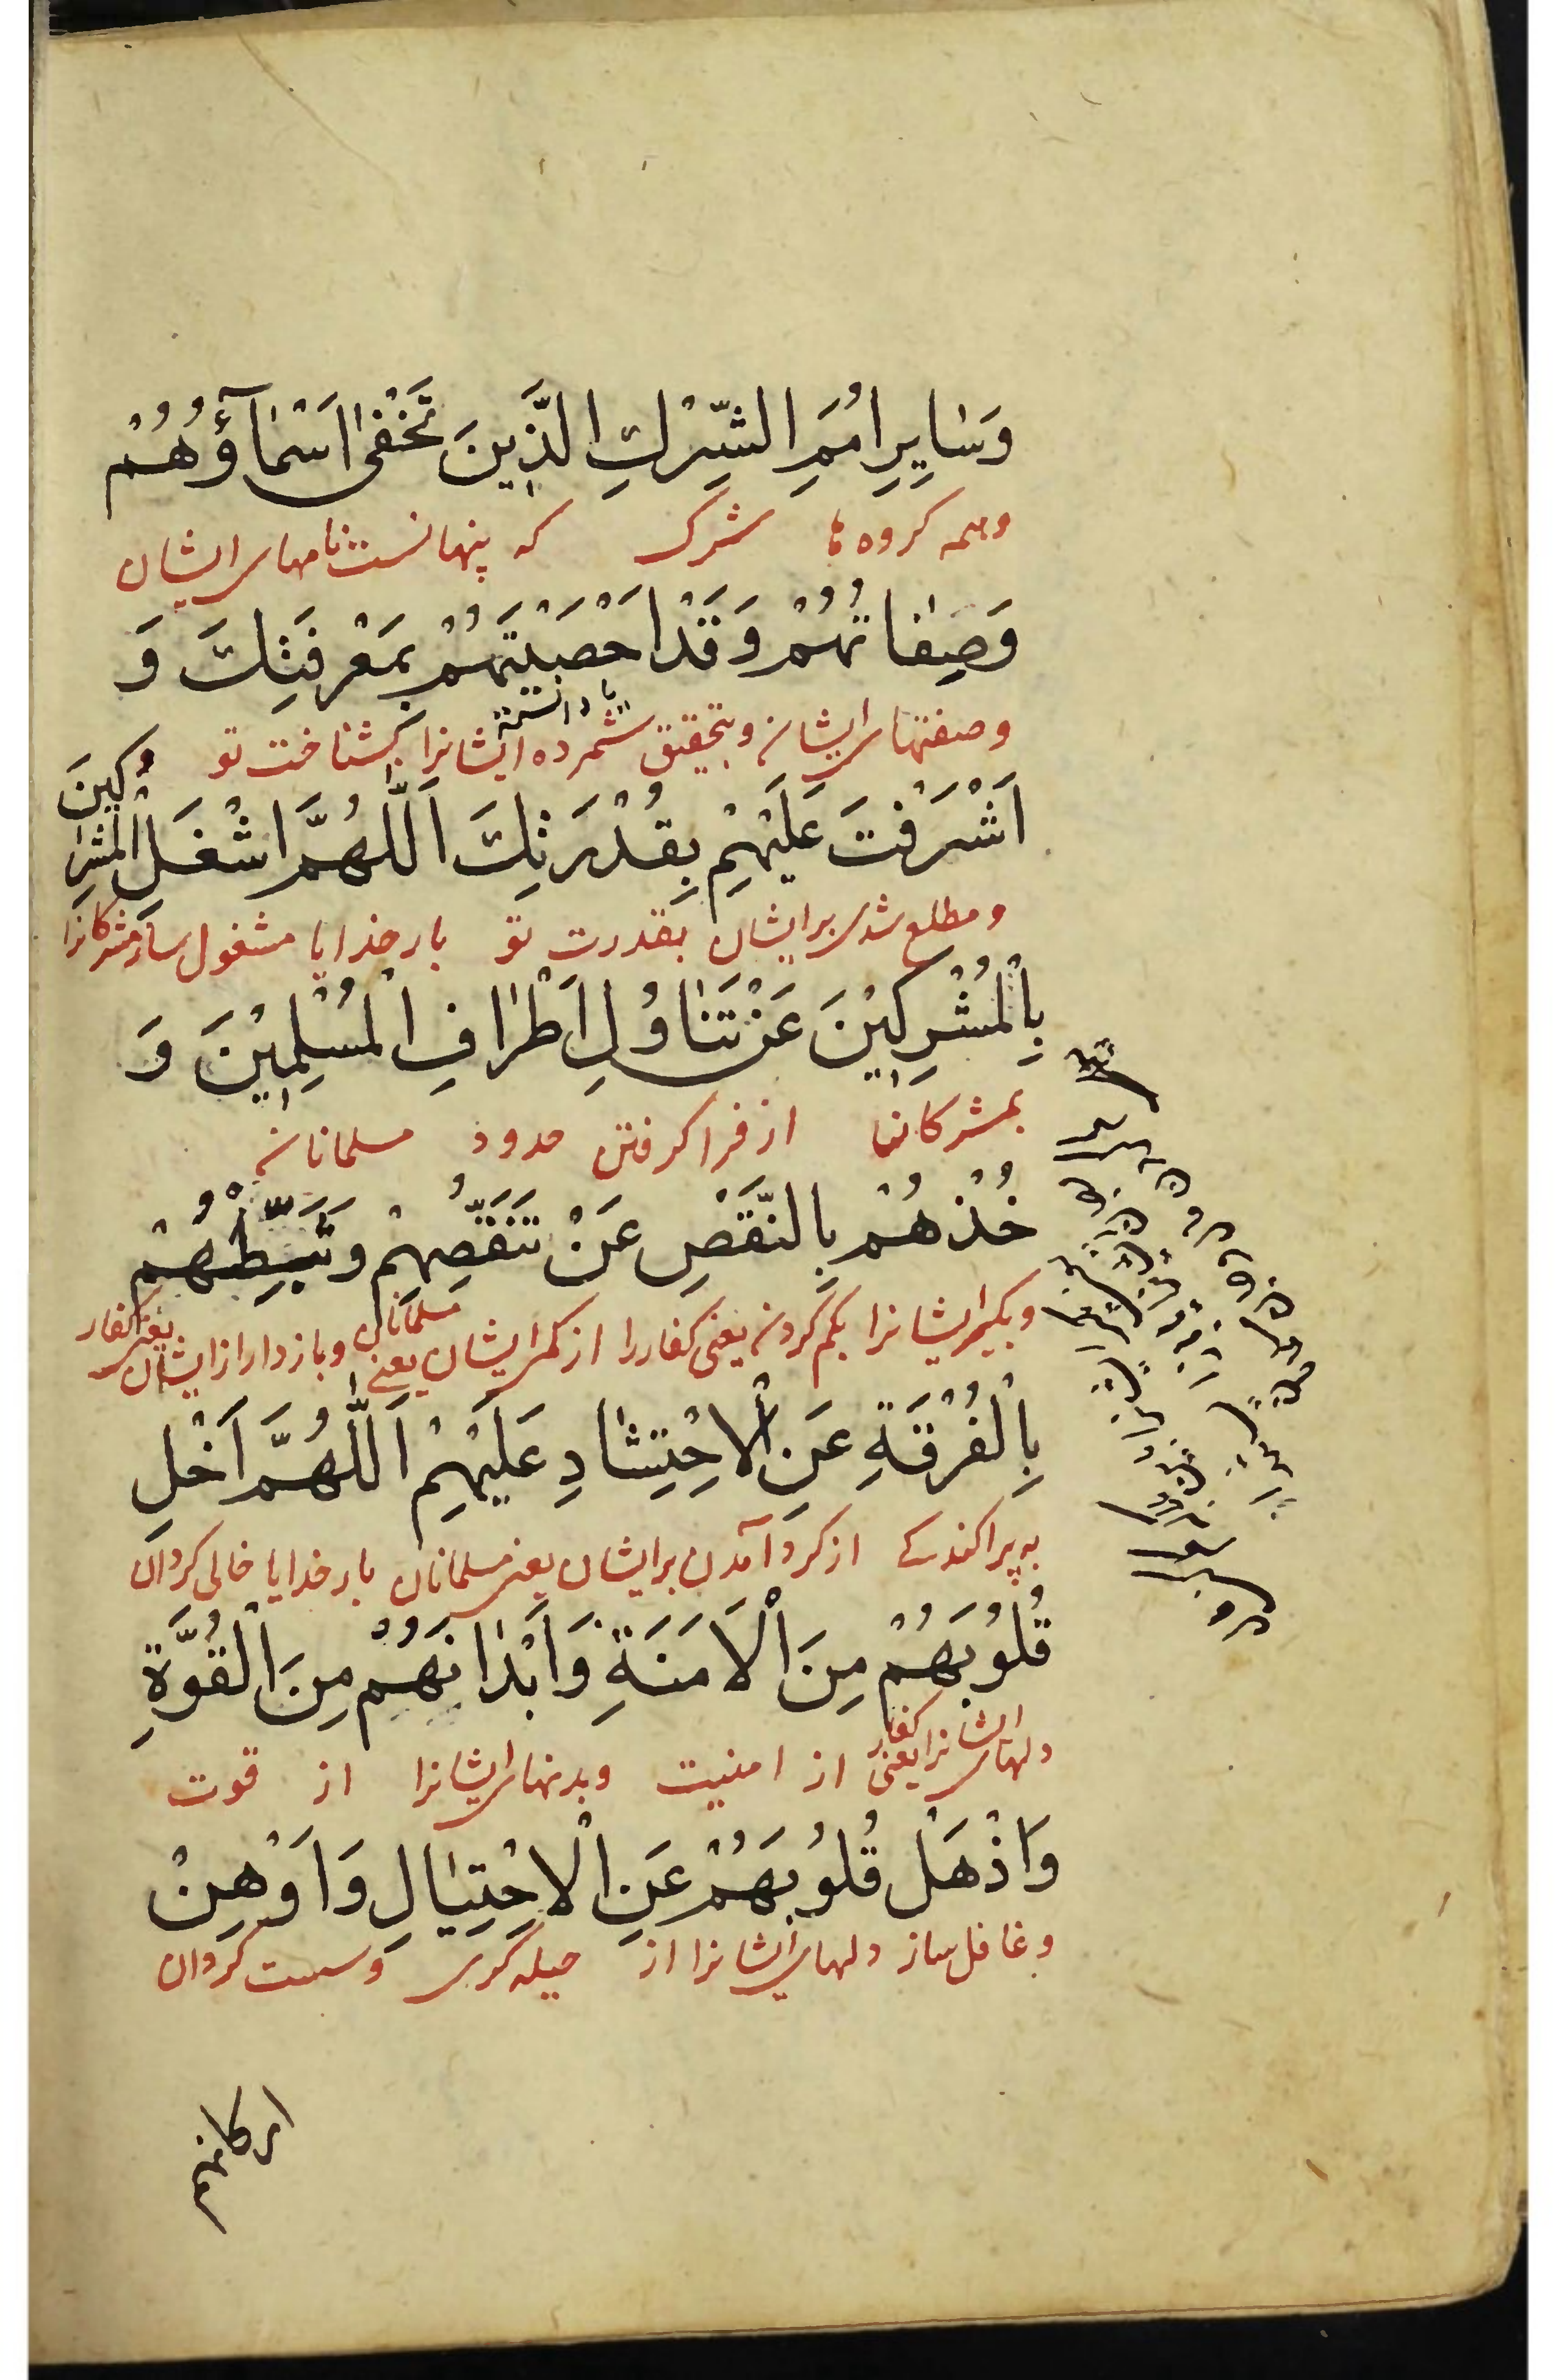 وَسٰايِرِ اُمَمِ الشِّرْكِ الَّذِينَ تَخْفٰى اَسْمٰآؤُهُمْ
وهمه کروه ها شرک که پنهانست نامهای ایشان
وَصِفٰاتُهُمْ وَقَدْ اَحْصَيْتَهُمْ بِمَعْرِفَتِكَ وَ
وصفتهای ایشان وبتحقیق شمرده ایشانرا بشناخت تو و
یا دانسته
اَشْرَفْتَ عَلَيْهِمْ بِقُدْرَتِكَ اَللّٰهُمَّ اشْغَلِ الْمُشْرِكينَ
ومطلع شدی برایشان بقدرت تو بار خدایا مشغول ساز مشرکانرا
بِالْمُشْرِكِيْنَ عَنْ تَنٰاوُلِ اَطْرٰافِ الْمُسْلِمِيْنَ وَ
بمشرکان از فرا کرفتن حدود مسلمانان
خُذْهُمْ بِالنَّقْصِ عَنْ تَنَقُّصِهِمْ وَثَبِّطْهُمْ
وبکیر ایشانرا بکم کردن یعنی کفاررا از کمی ایشان یعنی مسلمانان وباز دار از ایشان یعنی کفار
بِالْفُرْقَةِ عَنِ الْاِحْتِشٰادِ عَلَيْهِمْ اَللّٰهُمَّ اَخْلِ
به پراکندکی از کرد آمدن برایشان یعنی مسلمانان بار خدایا خالی کردان
قُلُوبَهُمْ مِنَ الْاَمَنَةِ وَاَبْدٰانَهُمْ مِنَ الْقُوَّةِ
دلهای ایشانرا یعنی کفار از امنیت وبدنهای ایشانرا از قوت
وَاَذْهِلْ قُلُوبَهُمْ عَنِ الْاِحْتِيٰالِ وَاَوْهِنْ
وغافل ساز دلهای ایشانرا از حیله کری وسست کردان
ارکانهم